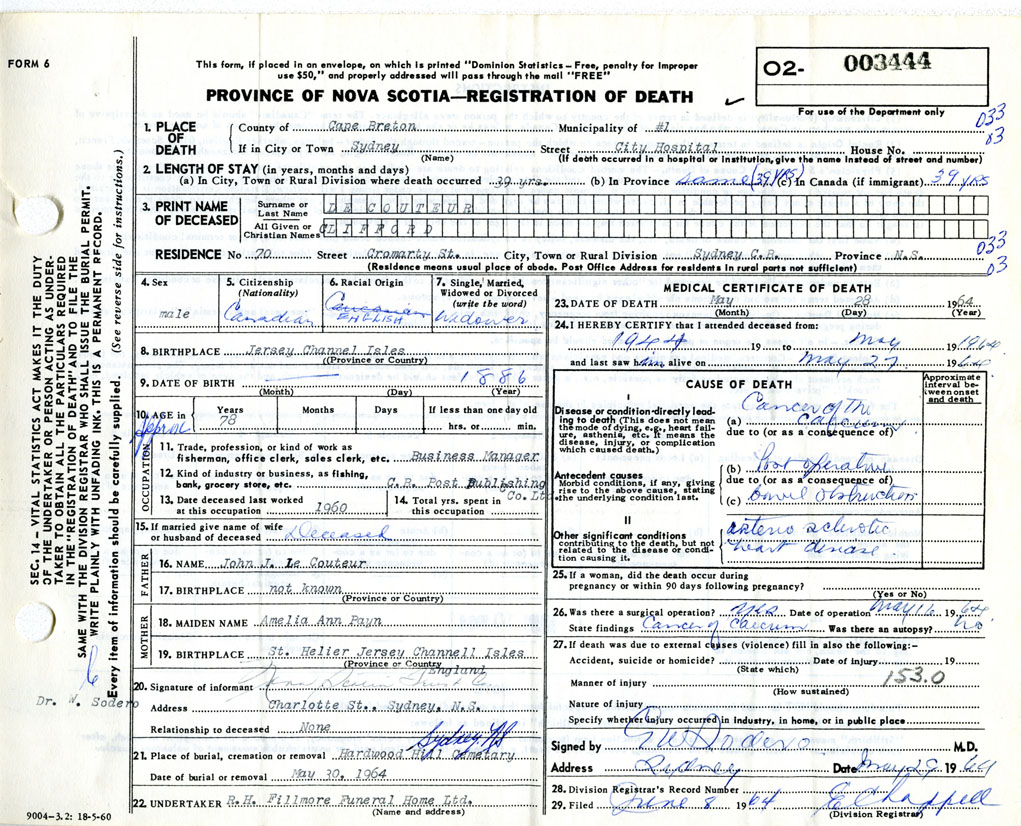 FORM 6
This form, if placed in an envelope, on which is printed "Dominion Statistics – Free, penalty for improper
use $50," and properly addressed will pass through the mail "FREE"
O2- 003444
PROVINCE OF NOVA SCOTIA—REGISTRATION OF DEATH
For use of the Department only
033
03
1. PLACE OF DEATH
County of Cape Breton Municipality of #1
If in City or Town Sydney Street City Hospital House No.
(Name) (If death occurred in a hospital or institution, give the name instead of street and number)
2. LENGTH OF STAY (in years, months and days)
(a) In City, Town or Rural Division where death occurred 39 yrs. (b) In Province same (39 YRS) (c) In Canada (if immigrant) 39 YRS
3. PRINT NAME OF DECEASED
Surname or Last Name LE COUTEUR
All Given or Christian Names CLIFFORD
RESIDENCE No 70 Street Cromarty St. City, Town or Rural Division Sydney C.B. Province N.S.
033
03
(Residence means usual place of abode. Post Office Address for residents in rural parts not sufficient)
4. Sex
male
5. Citizenship (Nationality)
Canadian
6. Racial Origin
Caucasian
ENGLISH
7. Single, Married, Widowed or Divorced (write the word)
Widower
8. BIRTHPLACE Jersey Channel Isles
(Province or Country)
9. DATE OF BIRTH 1886
(Month) (Day) (Year)
10. AGE in
Approx
Years Months Days If less than one day old
78 hrs. or min.
OCCUPATION
11. Trade, profession, or kind of work as
fisherman, office clerk, sales clerk, etc. Business Manager
12. Kind of industry or business, as fishing,
bank, grocery store, etc. C.B. Post Publishing
Co. Ltd
13. Date deceased last worked
at this occupation 1960
14. Total yrs. spent in
this occupation
15. If married give name of wife
or husband of deceased Deceased
FATHER
16. NAME John J. Le Couteur
17. BIRTHPLACE not known
(Province or Country)
MOTHER
18. MAIDEN NAME Amelia Ann Payn
19. BIRTHPLACE St. Helier Jersey Channell Isles
(Province or Country) England
20. Signature of informant Nova Scotia Trust Co.
Address Charlotte St., Sydney, N.S.
Relationship to deceased None
Sydney NS
21. Place of burial, cremation or removal Hardwood Hill Cemetary
Date of burial or removal May 30, 1964
22. UNDERTAKER R.H. Fillmore Funeral Home Ltd.
(Name and address)
9004-3.2: 18-5-60
MEDICAL CERTIFICATE OF DEATH
23. DATE OF DEATH May 28 1964
(Month) (Day) (Year)
24. I HEREBY CERTIFY that I attended deceased from:
1944 19 to May 19 1964
and last saw him alive on May 27 1964
CAUSE OF DEATH
Approximate interval between onset and death
I
Disease or condition directly leading to death (This does not mean the mode of dying, e.g., heart failure, asthenia, etc. It means the disease, injury, or complication which caused death.)
(a) Cancer of the
Caecum
due to (or as a consequence of)
Antecedent causes
Morbid conditions, if any, giving rise to the above cause, stating the underlying condition last.
(b) Post operative
due to (or as a consequence of)
(c) Bowel obstruction
II
Other significant conditions
contributing to the death, but not related to the disease or condition causing it.
arterio sclerotic
heart disease
25. If a woman, did the death occur during
pregnancy or within 90 days following pregnancy?
(Yes or No)
26. Was there a surgical operation? yes Date of operation May 16 1964
State findings Cancer of Caecum Was there an autopsy? no
27. If death was due to external causes (violence) fill in also the following:–
Accident, suicide or homicide? Date of injury 19
(State which)
153.0
Manner of injury
(How sustained)
Nature of injury
Specify whether injury occurred in industry, in home, or in public place
Signed by G W Sodero M.D.
Address Sydney Date May 29 1964
28. Division Registrar's Record Number
29. Filed June 8 1964 E Chappell
(Division Registrar)
SEC. 14 – VITAL STATISTICS ACT MAKES IT THE DUTY
OF THE UNDERTAKER OR PERSON ACTING AS UNDER-
TAKER TO OBTAIN ALL THE PARTICULARS REQUIRED
IN THE "REGISTRATION OF DEATH" AND TO FILE THE
SAME WITH THE DIVISION REGISTRAR WHO SHALL ISSUE THE BURIAL PERMIT.
WRITE PLAINLY WITH UNFADING INK. THIS IS A PERMANENT RECORD.
Every item of information should be carefully supplied. (See reverse side for instructions.)
Dr. W. Sodero